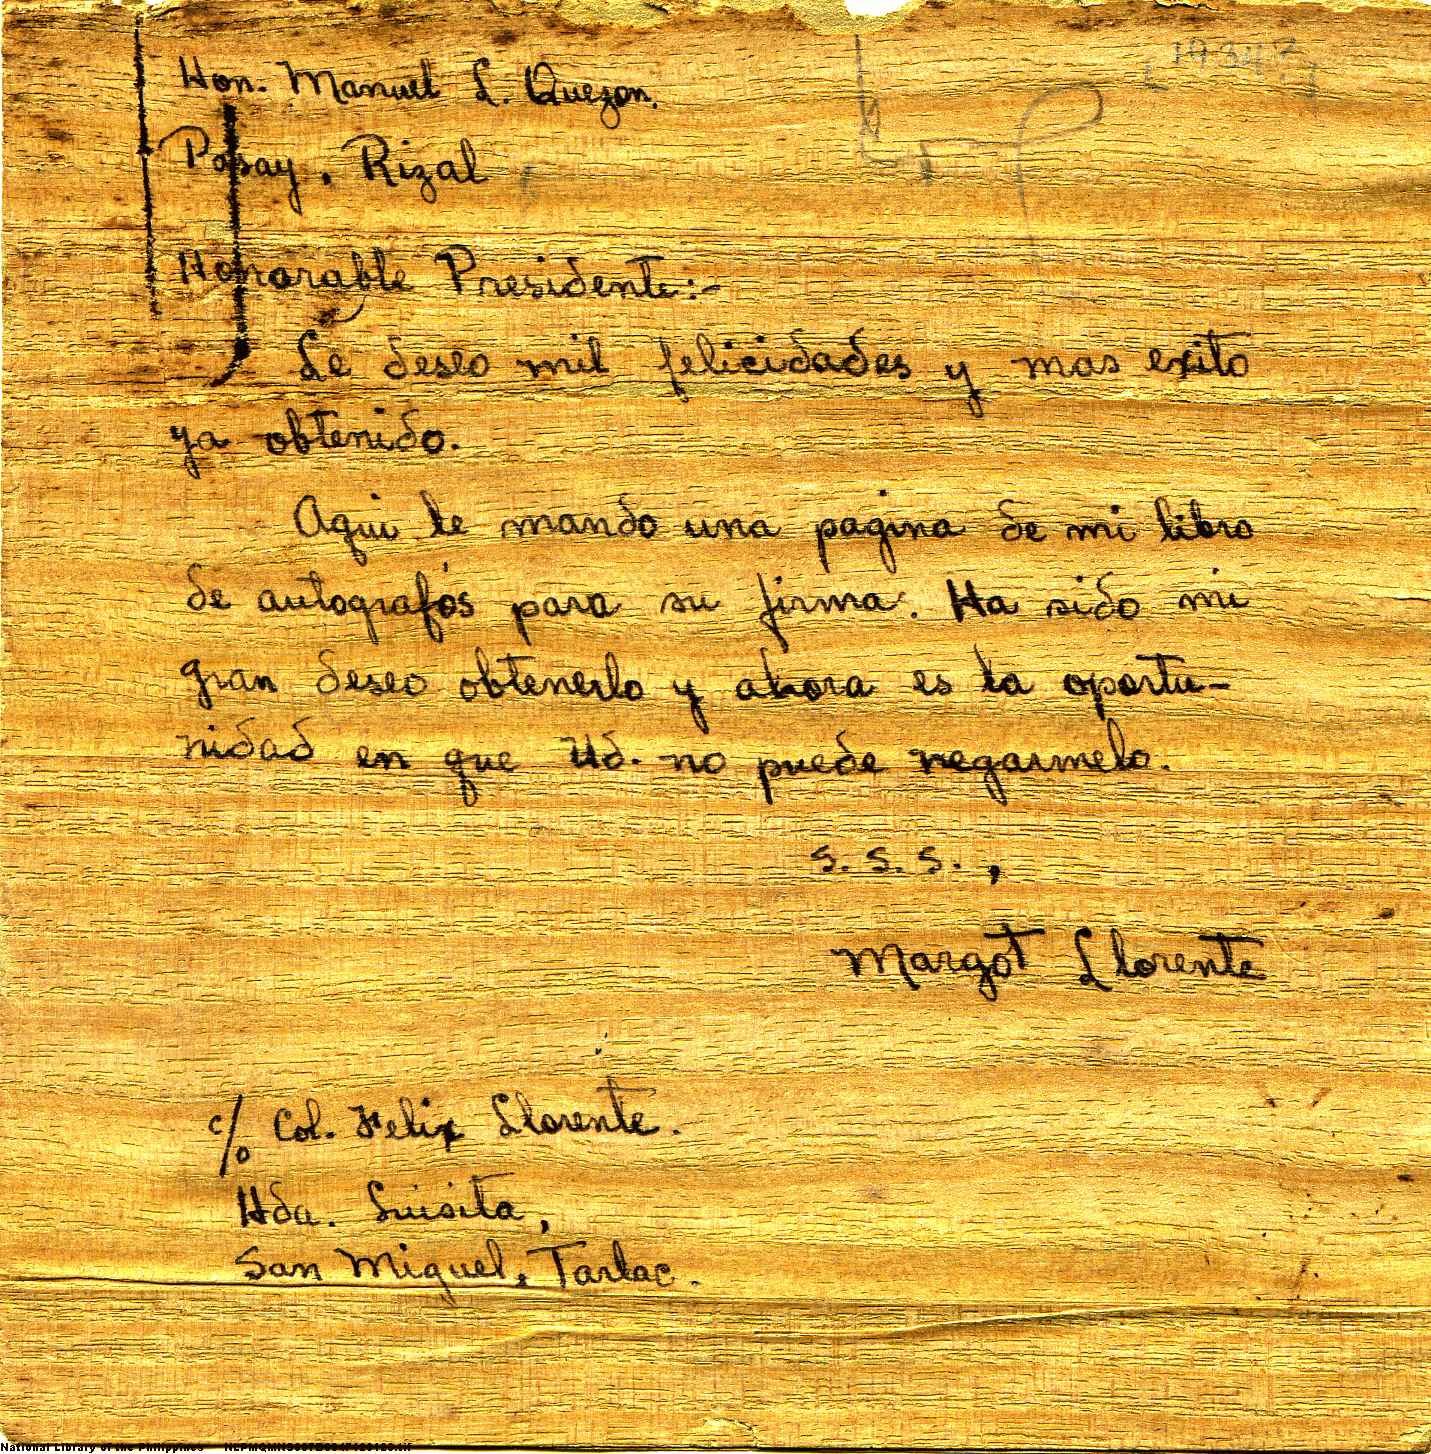 [1934?]
Hon. Manuel L. Quezon.
Pasay, Rizal
Honorable Presidente:-
Le deseo mil felicidades y mas exito
ya obtenido.
Aqui le mando una pagina de mi libro
de autografos para su firma. Ha sido mi
gran deseo obtenerlo y ahora es la oportu-
nidad en que Ud. no puede negarmelo.
s.s.s.,
Margot Llorente
c/o Col. Felix Llorente.
Hda. Luisita,
San Miguel, Tarlac.
National Library of the Philippines